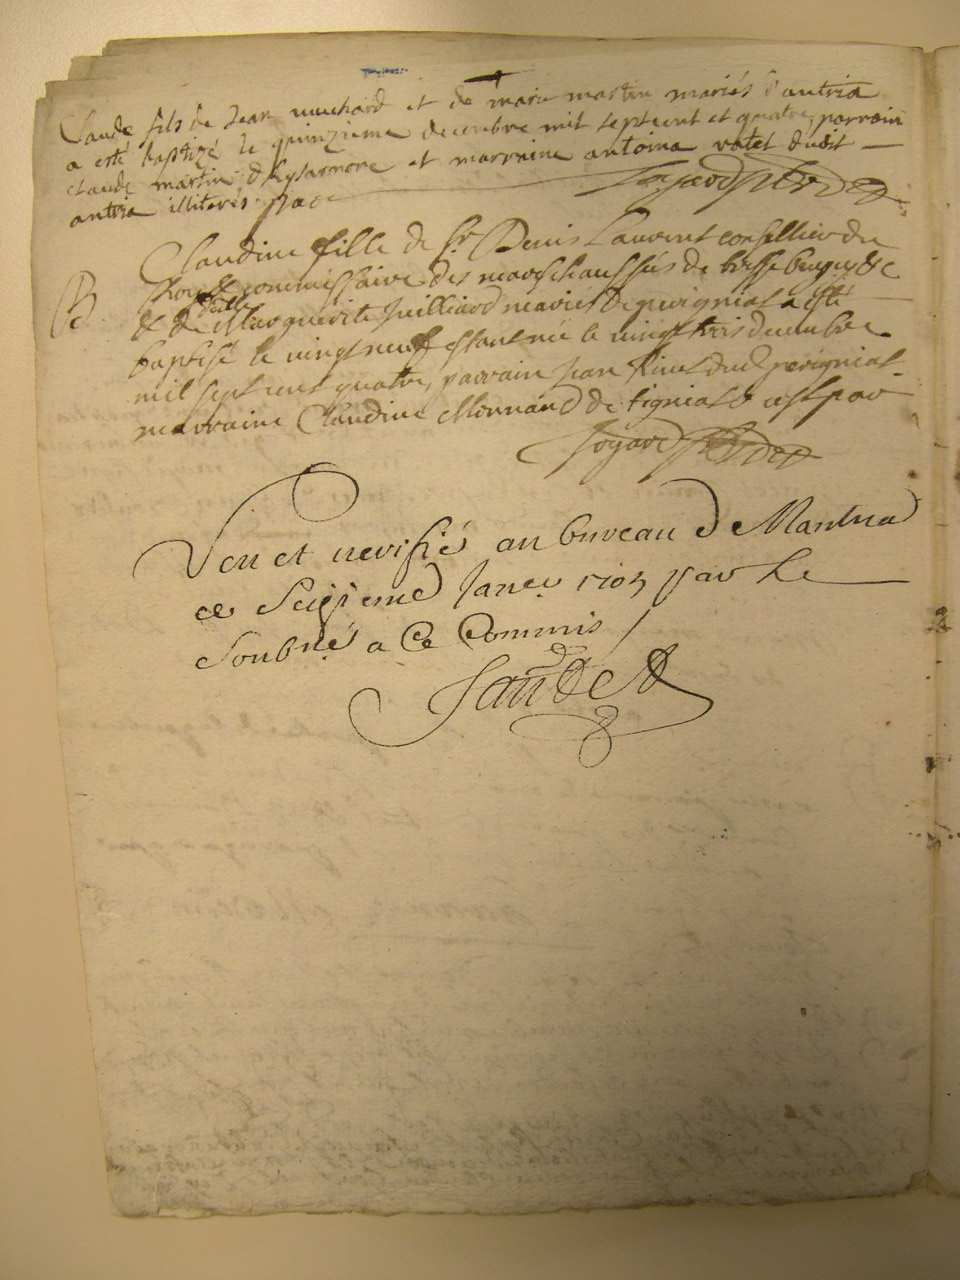 Claude fils de Jean muchard et de marie martin mariés d'antria
a esté baptizé le quinzieme decembre mil sept cent et quatre, parrain
claude martin et marraine antoina votet dudit
antria illiteres par
B. Claudine fille de Sr Denis Laurent conseillier du
Roy & commissaire des mareschaussées de bresse bugey &c
& de dlle Marguerite Juilliard mariés de peirigniat a esté
baptisé le vingt neuf estant née le vingt trois decembre
mil sept cent quatre, parrain Jean dud peirigniat
marraine Claudine Monnand de tigniat & est par
Joyard
Veu et veriffié au bureau de Nantua
ce Seizieme Janer 1705 par Le
Soubné a Ce Commis